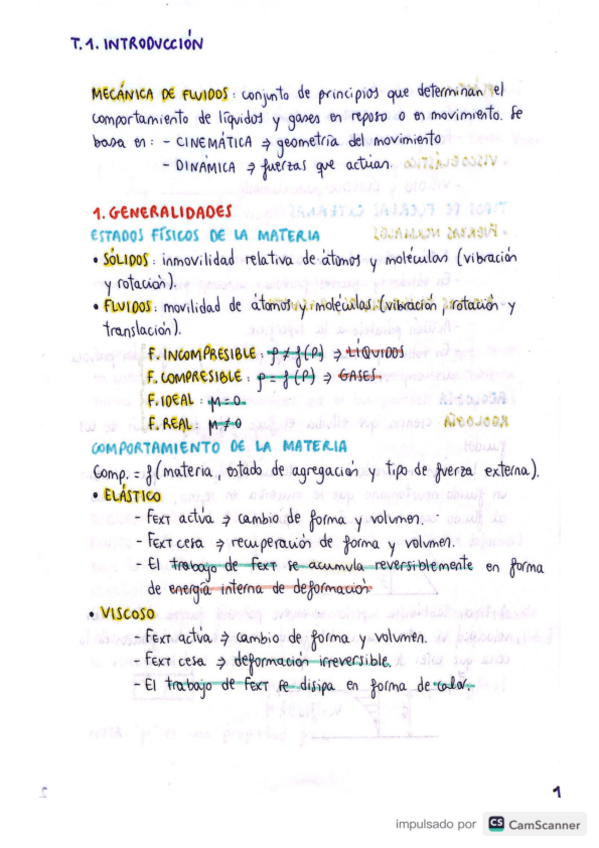 T.1. INTRODUCCIÓN
MECÁNICA DE FLUIDOS: conjunto de principios que determinan el
comportamiento de líquidos y gases en reposo o en movimiento. Se
basa en: - CINEMÁTICA ⇒ geometría del movimiento
- DINÁMICA ⇒ fuerzas que actúan.
1. GENERALIDADES
ESTADOS FÍSICOS DE LA MATERIA
• SÓLIDOS: inmovilidad relativa de átomos y moléculas (vibración
y rotación).
• FLUIDOS: movilidad de átomos y moléculas (vibración, rotación y
translación).
F. INCOMPRESIBLE: ρ ≠ f(P) ⇒ LÍQUIDOS
F. COMPRESIBLE: ρ = f(P) ⇒ GASES.
F. IDEAL: μ = 0.
F. REAL: μ ≠ 0
COMPORTAMIENTO DE LA MATERIA
Comp. = f(materia, estado de agregación y tipo de fuerza externa).
• ELÁSTICO
- FEXT activa ⇒ cambio de forma y volumen.
- FEXT cesa ⇒ recuperación de forma y volumen.
- El trabajo de FEXT se acumula reversiblemente en forma
de energía interna de deformación
• VISCOSO
- FEXT activa ⇒ cambio de forma y volumen.
- FEXT cesa ⇒ deformación irreversible.
- El trabajo de FEXT se disipa en forma de calor.
1
impulsado por CS CamScanner